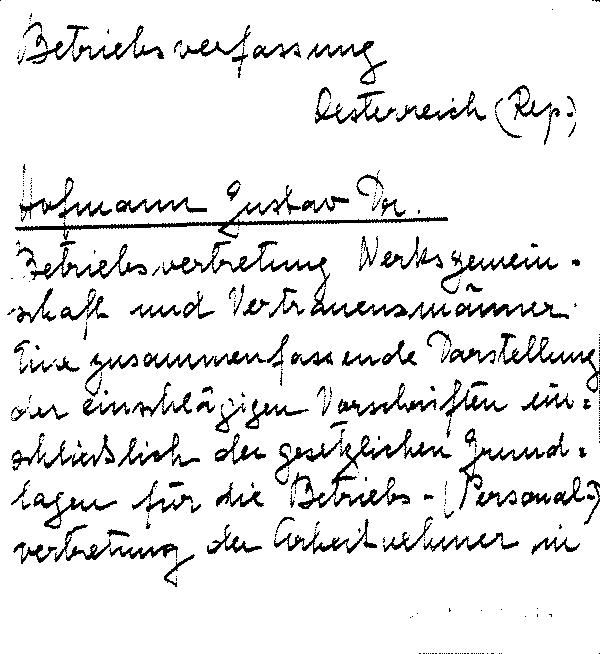 Betriebsverfassung
Oesterreich (Rep.)
Hofmann Gustav Dr.
Betriebsvertretung Werksgemein-
schaft und Vertrauensmänner.
Eine zusammenfassende Darstellung
der einschlägigen Vorschriften ein-
schließlich der gesetzlichen Grund-
lagen für die Betriebs-(Personal-)
vertretung der Arbeitnehmer in